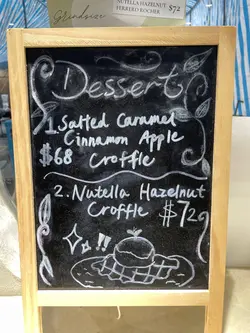 Grindsize
NUTELLA HAZELNUT
FERRERO ROCHER
$72
Dessert
1. Salted Caramel
Cinnamon Apple
$68 Croffle
2. Nutella Hazelnut
Croffle $72
!!